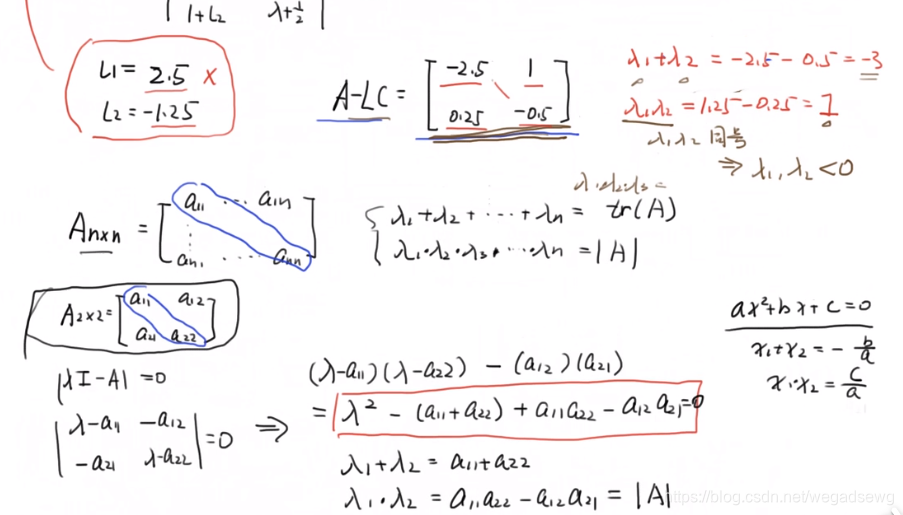 1+L₂ λ+½
L₁= 2.5 ×
L₂=-1.25
A-LC = [ -2.5 1
0.25 -0.5 ]
λ₁+λ₂ = -2.5-0.5=-3
λ₁λ₂ = 1.25-0.25=1
λ₁λ₂ 同号
⇒ λ₁,λ₂<0
Anxn = [ a₁₁ ... a₁n
an₁ ... ann ]
λ₁+λ₂+ ··· +λn = tr(A)
λ₁·λ₂·λ₃· ··· λn = |A|
A₂ₓ₂= [ a₁₁ a₁₂
a₂₁ a₂₂ ]
|λI-A| =0
| λ-a₁₁ -a₁₂
-a₂₁ λ-a₂₂ | =0 ⇒
(λ-a₁₁)(λ-a₂₂) - (a₁₂)(a₂₁)
= λ² - (a₁₁+a₂₂) + a₁₁a₂₂ - a₁₂a₂₁=0
λ₁+λ₂ = a₁₁+a₂₂
λ₁·λ₂ = a₁₁a₂₂-a₁₂a₂₁ = |A|
ax²+bx+c=0
x₁+x₂ = - b/a
x₁·x₂ = c/a
https://blog.csdn.net/wegadsewg